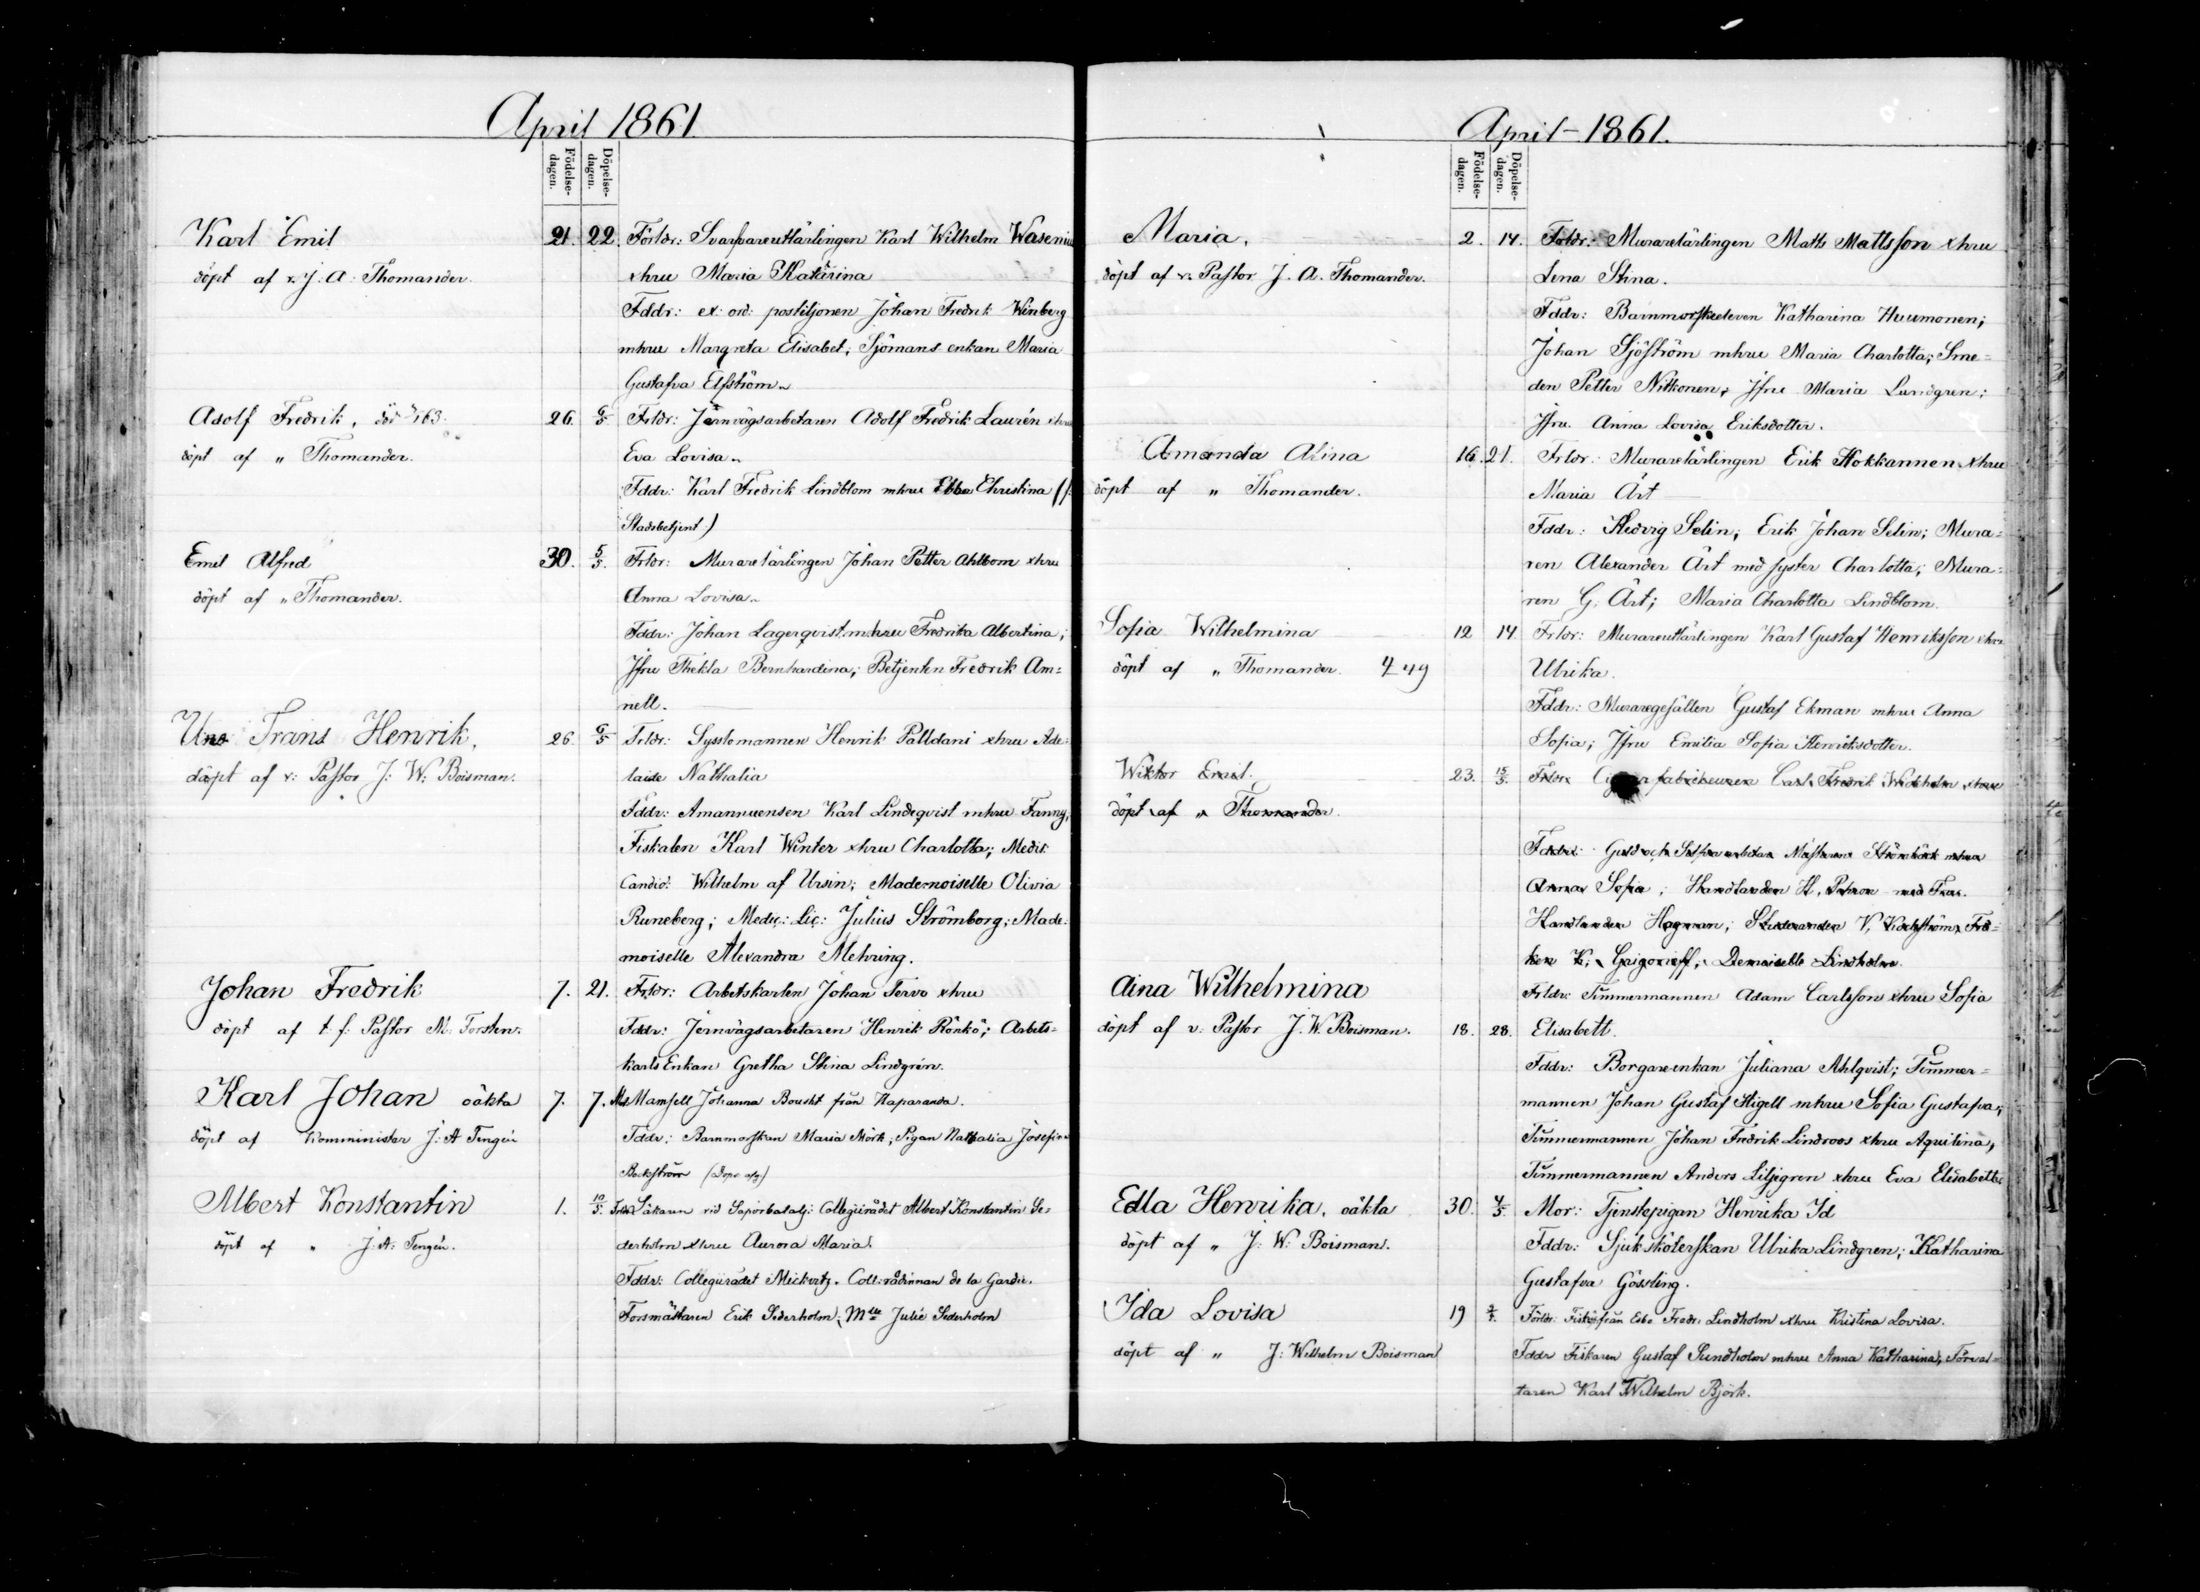 April 1861.
Födelse-dagen.
Döpelse-dagen.
Karl Emil
döpt af v. J. A. Thomander.
21. 22.
Förldr: Svarfvareutlärlingen Karl Wilhelm Wasenius
xhru Maria Katarina
Fddr: ex. ord: postiljonen Johan Fredrik Winberg
mhru Margreta Elisabet; Sjömans enkan Maria
Gustafva Elfström.
Adolf Fredrik,
döpt af " Thomander.
26. 6/5
Frldr: Jernvägsarbetaren Adolf Fredrik Laurén xhru
Eva Lovisa.
Fddr: Karl Fredrik Lindblom mhru Ebba Christina (f.
Stadsbetjent.)
Emil Alfred
döpt af " Thomander.
30. 5/5.
Frldr: Murarelärlingen Johan Petter Ahlbom xhru
Anna Lovisa.
Fddr: Johan Lagerqvist mhru Fredrika Albertina;
Jfru Thekla Bernhardina; Betjenten Fredrik Am=
nell.
Uno Frans Henrik,
döpt af v: Pastor J: W: Boisman.
26. 6/5
Frldr: Sysslomannen Henrik Palldani xhru Ade=
laide Nathalia
Fddr: Amanuensen Karl Lindeqvist mhru Fanny,
Fiskalen Karl Winter xhru Charlotta; Medic:
Candid: Wilhelm af Ursin; Mademoiselle Olivia
Runeberg; Medic: Lic: Julius Strömborg; Made=
moiselle Alexandra Mehring.
Johan Fredrik
döpt af t. f: Pastor M. Forsten.
7. 21.
Frldr: Arbetskarlen Johan Tervo xhru
Fddr: Jernvägsarbetaren Henrik Rönkö; Arbets=
karls Enkan Gretha Stina Lindgrén.
Karl Johan oäkta
döpt af Komminister J: A Tengén
7. 7.
Mamsell Johanna Boucht från Haparanda.
Fddr: Barnmorskan Maria Mörk; Pigan Nathalia Josefina
Backström
Albert Konstantin
döpt af " J: A: Tengén.
1. 10/5.
Läkaren vid Sapörbatalj: Collegiirådet Albert Konstantin Se=
derholm xhru Aurora Maria.
Fddr: Collegiirådet Mickwitz. Coll:rådinnan de la Gardie.
Forsmästaren Erik Sederholm, Mlle Julie Sederholm
April 1861.
Födelse-dagen.
Döpelse-dagen.
Maria,
döpt af v. Pastor J. A. Thomander.
2. 14.
Frldr: Murarelärlingen Matts Mattsson xhru
Lena Stina.
Fddr: Barnmorskeeleven Katharina Huumonen;
Johan Sjöström mhru Maria Charlotta; Sme=
den Petter Nikkonen; Jfru Maria Lundgren;
Jfru. Anna Lovisa Eriksdotter.
Amanda Alina
döpt af " Thomander.
16. 21.
Frldr: Murarelärlingen Erik Hokkannen xhru
Maria Ärt
Fddr: Hedvig Selin; Erik Johan Selin; Mura=
ren Alexander Ärt med syster Charlotta; Mura=
ren G. Ärt; Maria Charlotta Lindblom.
Sofia Wilhelmina
döpt af " Thomander.
12 14
Frldr: Murareutlärlingen Karl Gustaf Henriksson xhru
Ulrika.
Fddr: Muraregesällen Gustaf Ekman mhru Anna
Sofia; Jfru Emilia Sofia Henriksdotter.
Wiktor Emil.
döpt af " Thomander.
23. 15/5.
Frldr: fabrikeuren Carl Fredrik Wickholm xhru
Fddr: Guld och Silfverarbetare Mästaren Strömbäck mhru
Anna Sofia; Handlanden H. med Fru.
Handlanden Hagman; Studeranden V. Frö=
ken K. Grigorieff; Demoiselle Lindholm.
Aina Wilhelmina
döpt af v: Pastor J. W. Boisman.
18. 28.
Frldr: Timmermannen Adam Carlsson xhru Sofia
Elisabett.
Fddr: Borgareenkan Juliana Ahlqvist; Timmer=
mannen Johan Gustaf Stigell mhru Sofia Gustafva;
Timmermannen Johan Fredrik Lindroos xhru Aquilina;
Timmermannen Anders Liljegren xhru Eva Elisabetta.
Edla Henrika, oäkta
döpt af " J: W: Boisman.
30. 4/5.
Mor: Tjenstepigan Henrika Id
Fddr: Sjuksköterskan Ulrika Lindgren; Katharina
Gustafva Gössling.
Ida Lovisa
döpt af " J: Wilhelm Boisman
19
Förldr: från Esbo Fredr. Lindholm xhru Kristina Lovisa.
Fddr Fiskaren Gustaf Sundholm mhru Anna Katharina, Förval=
taren Karl Wilhelm Björk.